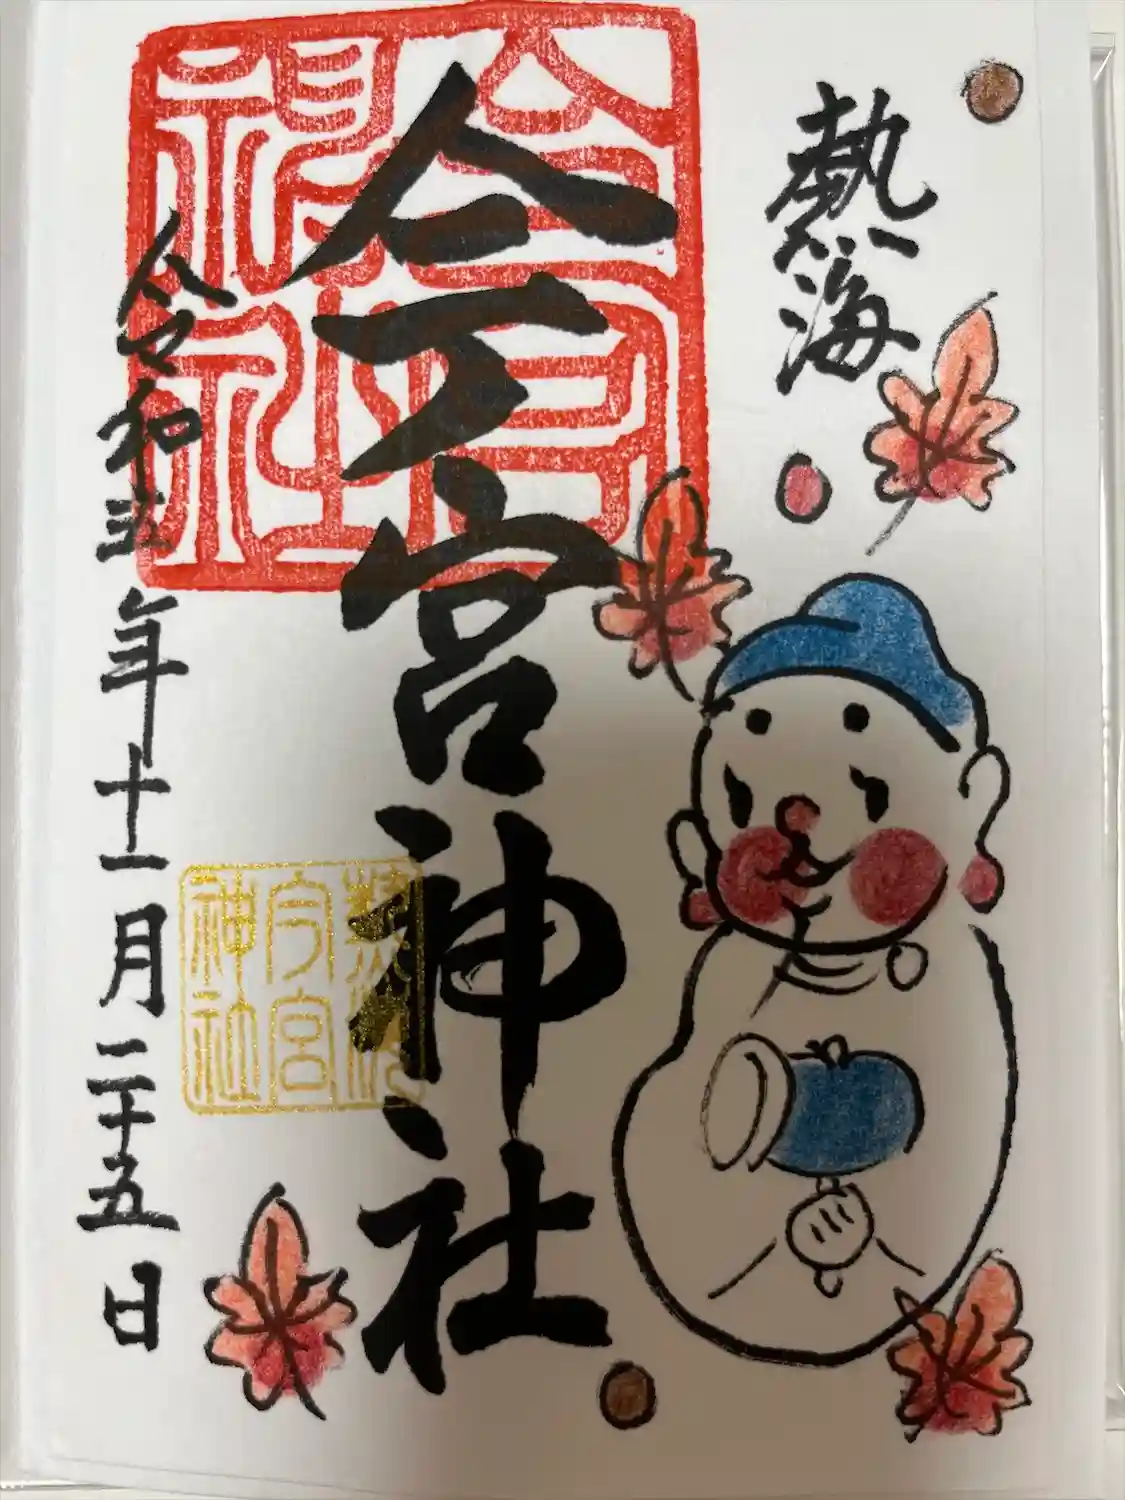 熱海
今宮神社
今宮神社
熱海
今宮
神社
令和五年十一月二十五日